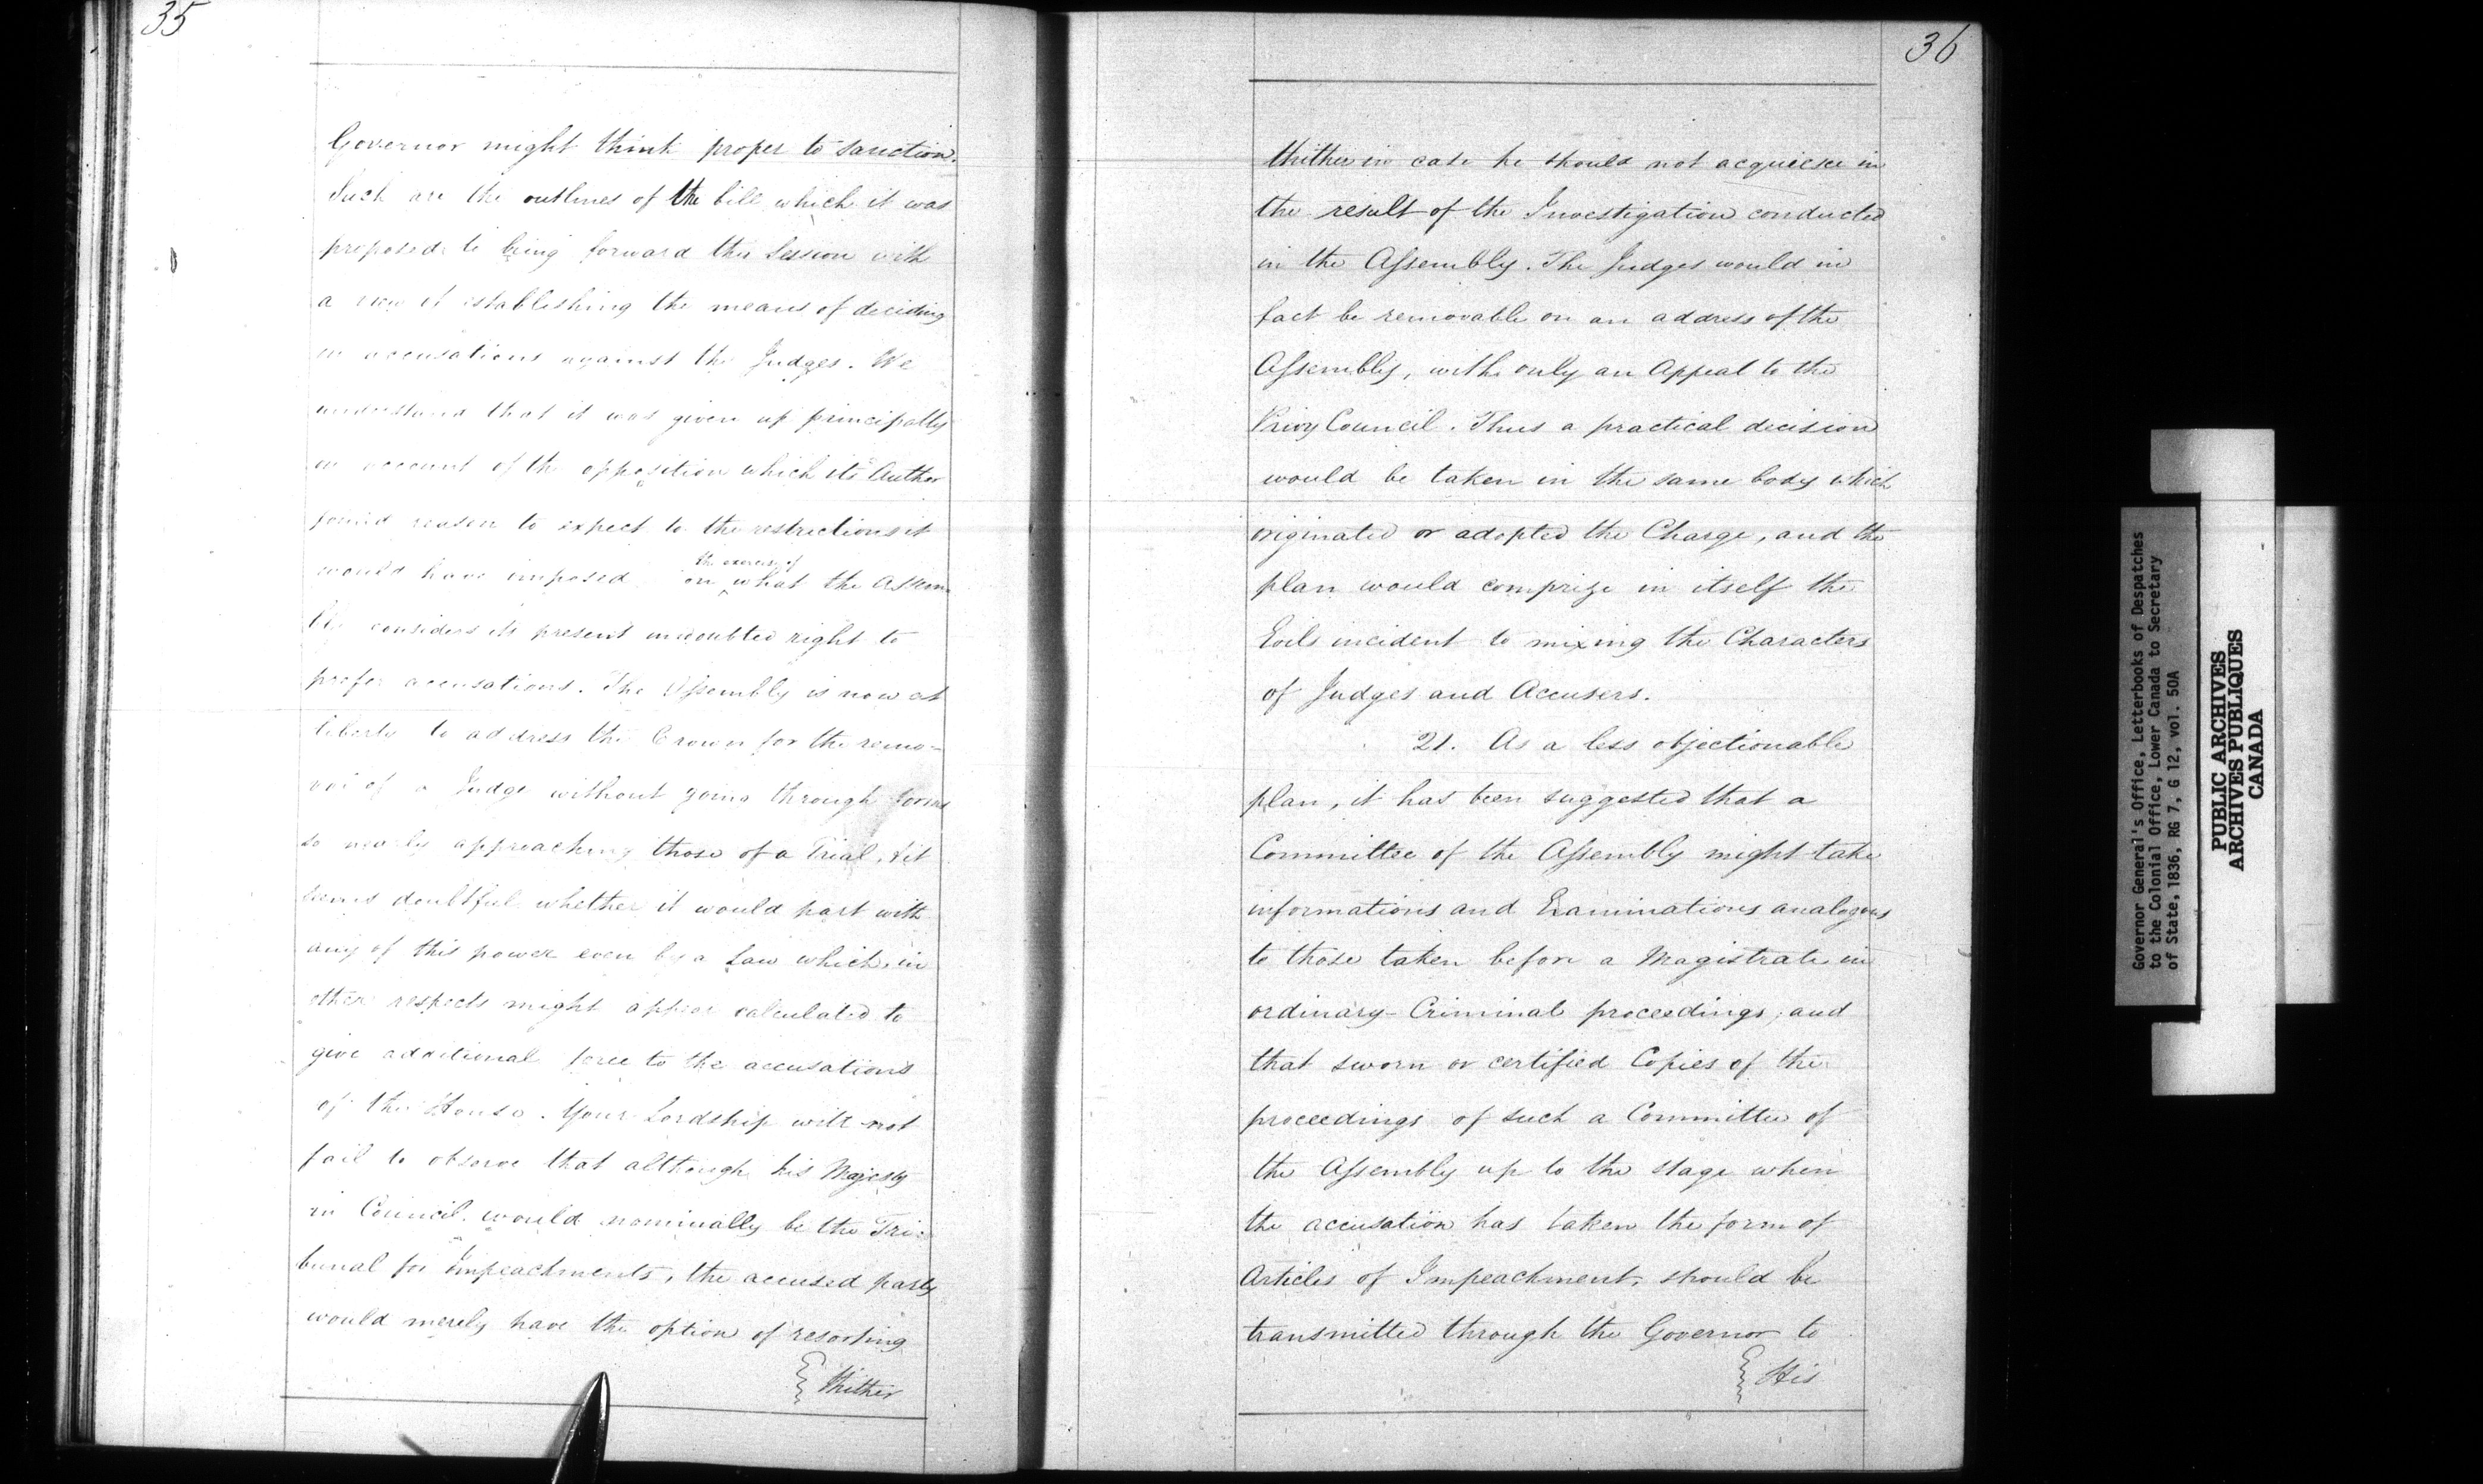 35
Governor might think proper to sanction.
Such are the outlines of the bill which it was
proposed to bring forward this Session with
a view of establishing the means of deciding
on accusations against the Judges. We
understand that it was given up principally
on account of the opposition which its Author
found reason to expect to the restrictions it
the exercise of
would have imposed on what the Assem-
bly considers its present undoubted right to
prefer accusations. The Assembly is now at
liberty to address the Crown for the remo-
val of a Judge without going through forms
so nearly approaching those of a Trial, & it
seems doubtful whether it would part with
any of this power even by a Law which, in
other respects might appear calculated to
give additional force to the accusations
of the House. Your Lordship will not
fail to observe that although his Majesty
in Council would nominally be the Tri-
bunal for Impeachments, the accused party
would merely have the option of resorting
thither
36
thither in case he should not acquiesce in
the result of the Investigation conducted
in the Assembly. The Judges would in
fact be removable on an address of the
Assembly, with only an Appeal to the
Privy Council. Thus a practical decision
would be taken in the same body which
originated or adopted the Charge, and the
plan would comprize in itself the
Evils incident to mixing the Characters
of Judges and Accusers.
21. As a less objectionable
plan, it has been suggested that a
Committee of the Assembly might take
informations and Examinations analogous
to those taken before a Magistrate in
ordinary Criminal proceedings, and
that sworn or certified Copies of the
proceedings of such a Committee of
the Assembly up to the stage when
the accusation has taken the form of
Articles of Impeachment, should be
transmitted through the Governor to
His
Governor General's Office, Letterbooks of Despatches
to the Colonial Office, Lower Canada to Secretary
of State, 1836, RG 7, G 12, vol. 50A
PUBLIC ARCHIVES
ARCHIVES PUBLIQUES
CANADA